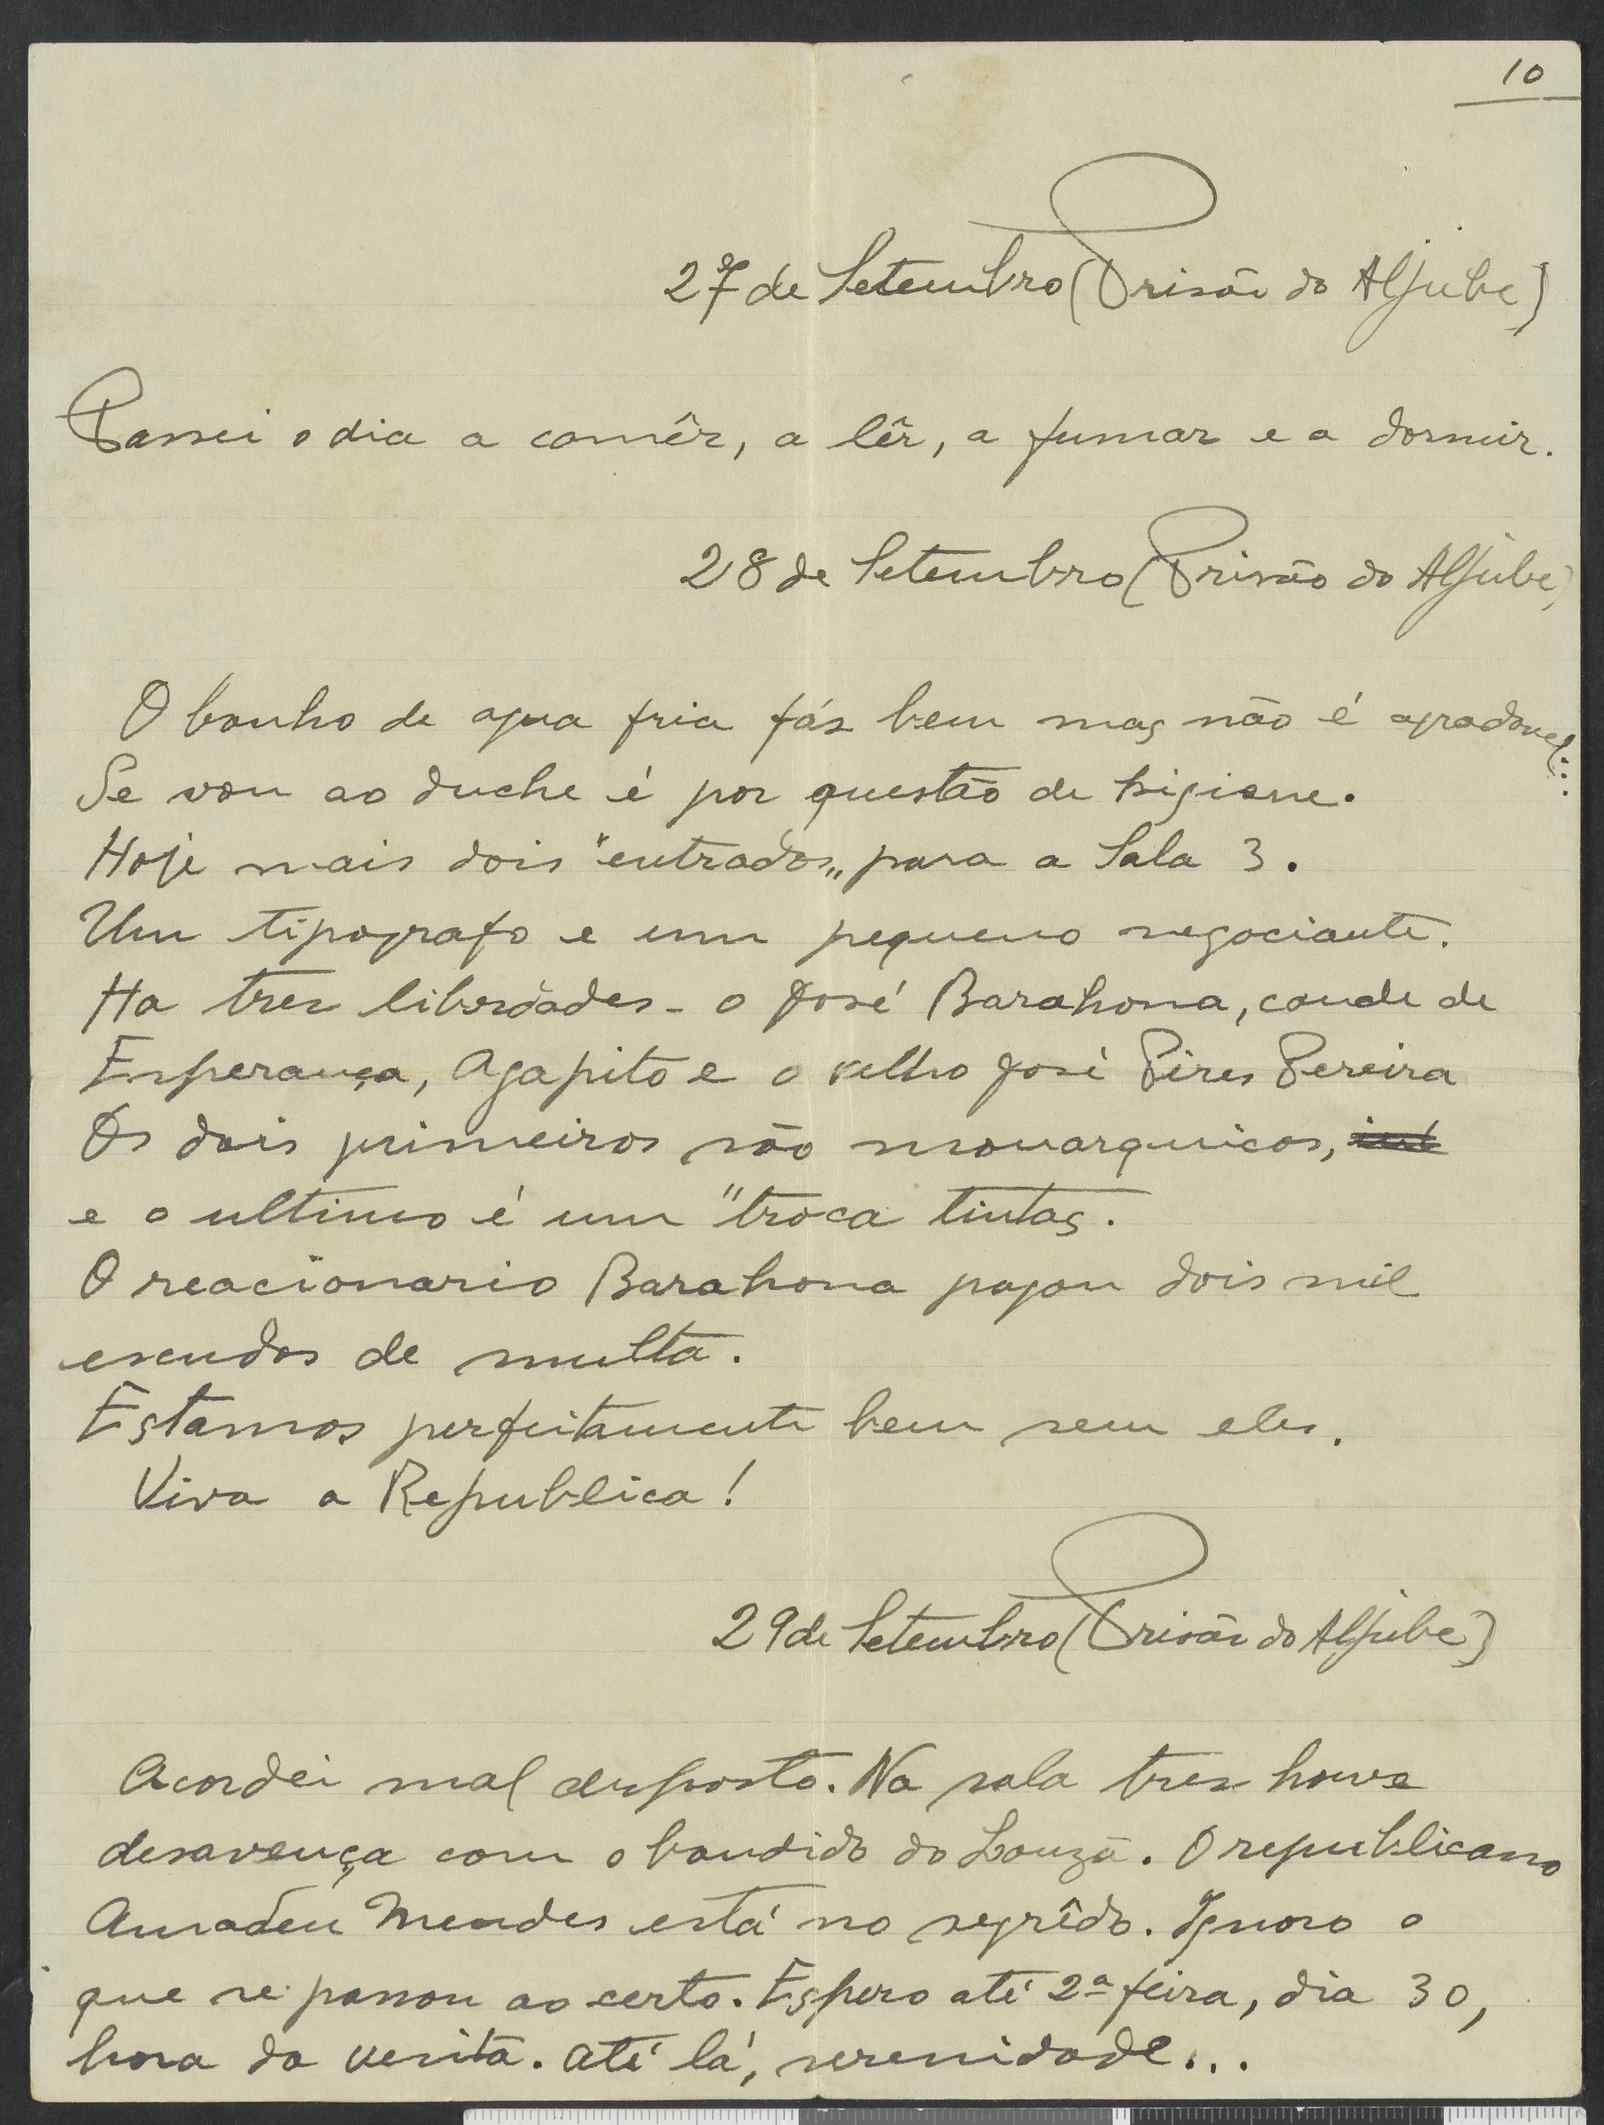 10
27 de Setembro (Prisão do Aljube)
Passei o dia a comêr, a lêr, a fumar e a dormir.
28 de Setembro (Prisão do Aljube)
O banho de agua fria fás bem mas não é agradavel...
Se vou ao duche é por questão de higiene.
Hoje mais dois "entrados„ para a Sala 3.
Um tipografo e um pequeno negociante.
Ha tres liberdades - o José Barahona, conde de
Esperança, Agapito e o velho José Pires Pereira
Os dois primeiros são monarquicos,
e o ultimo é um "troca tintas.
O reacionario Barahona pagou dois mil
escudos de multa.
Estamos perfeitamente bem sem eles.
Viva a Republica!
29 de Setembro (Prisão do Aljube)
Acordei mal disposto. Na sala tres houve
desavença com o bandido do Louzã. O republicano
Amadeu Mendes está no segrêdo. Ignoro o
que se passou ao certo. Espero até 2ª feira, dia 30,
hora da visita. Até lá, serenidade...